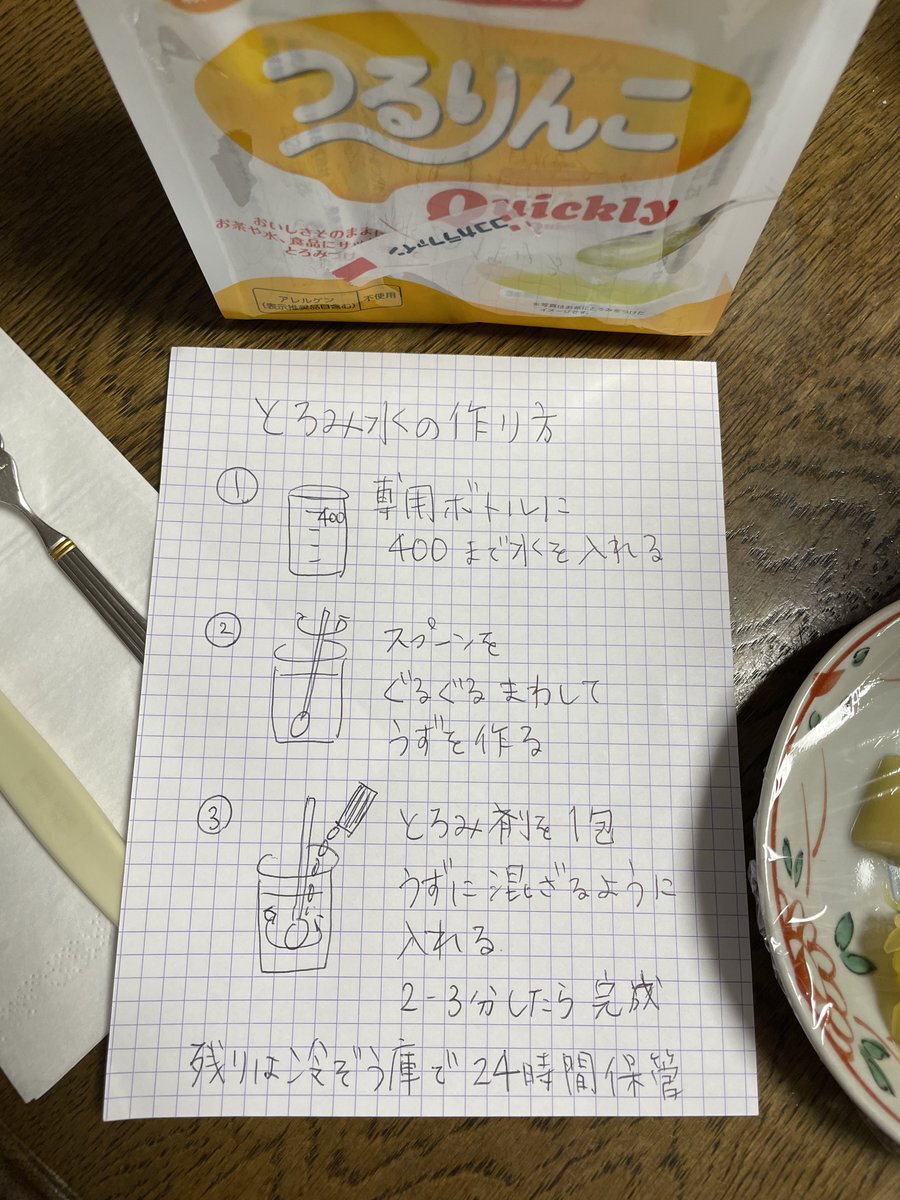 つるりんこ
Quickly
おいしさそのままに
お茶や水、食品にサッ
とろみづけ
ココカラファイン
アレルゲン
(表示推奨品目含む)
不使用
※写真はお茶にとろみをつけた
イメージです。
とろみ水の作り方
①
400
専用ボトルに
400まで水を入れる
②
スプーンを
ぐるぐるまわして
うずを作る
③
とろみ剤を1包
うずに混ざるように
入れる.
2-3分したら完成
残りは冷ぞう庫で24時間保管